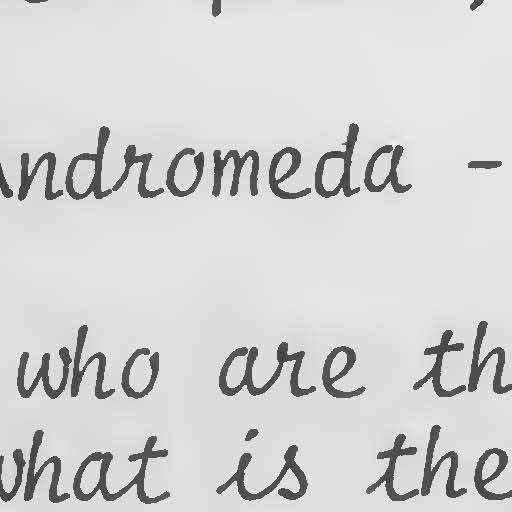 Andromeda -
who are th
what is the